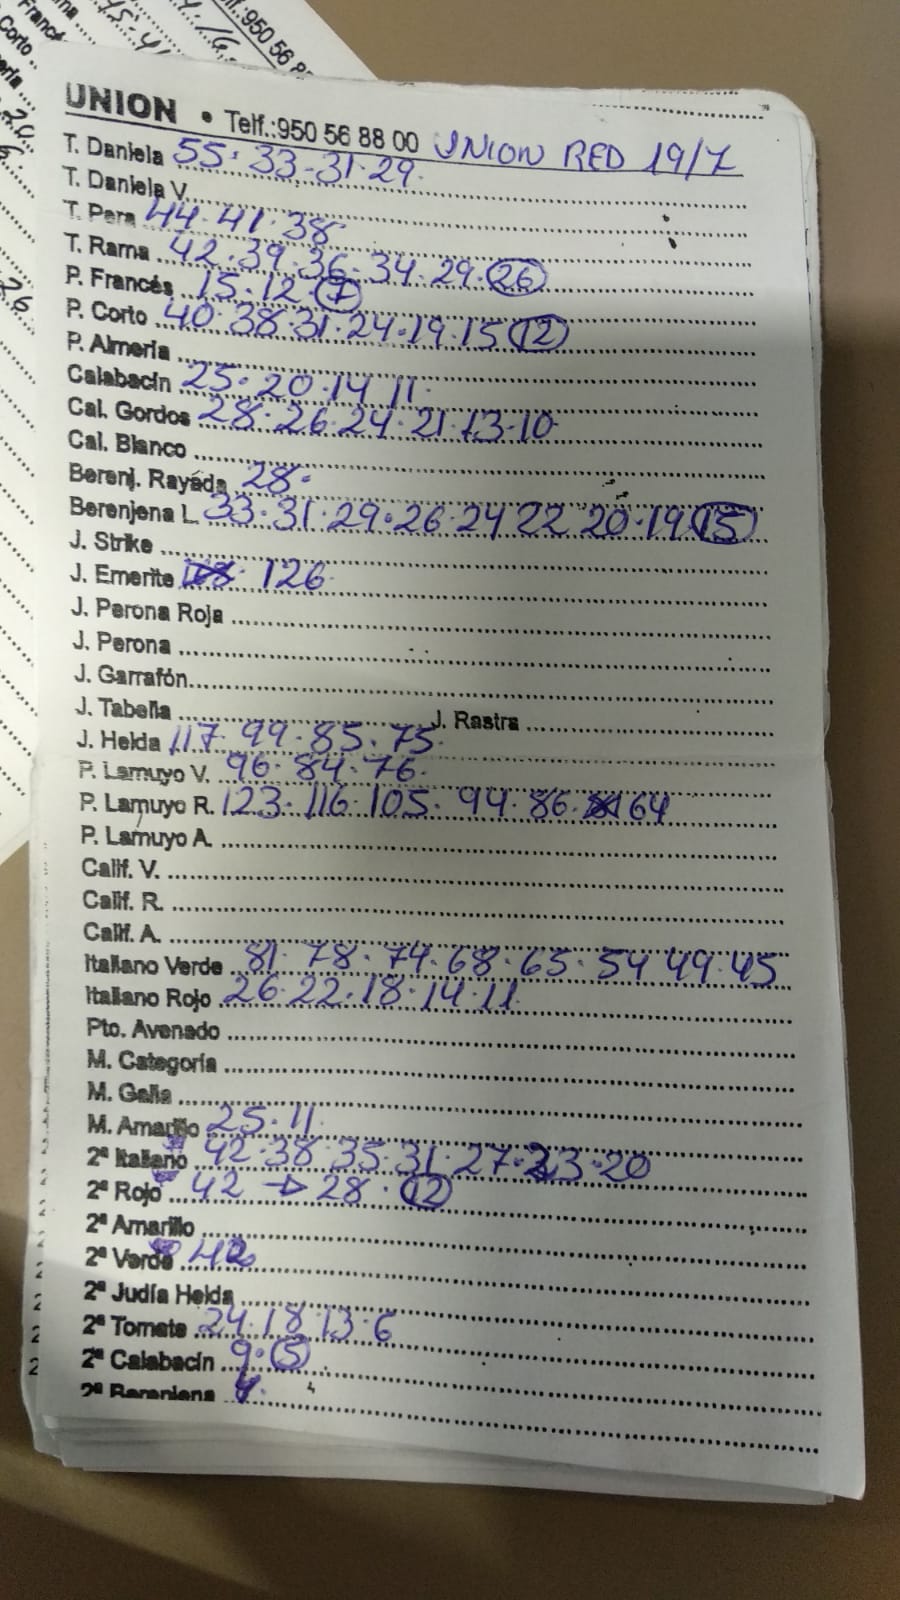 UNION • Telf.:950 56 88 00 UNION RED 19/7
T. Daniela 55·33·31·29·
T. Daniela V.
T. Pera 44·41·38
T. Rama 42·39·36·34·29·26
P. Francés 15·12·7
P. Corto 40·38·31·24·19·15 12
P. Almería
Calabacín 25·20·14 11·
Cal. Gordos 28·26·24·21·13·10
Cal. Blanco
Berenj. Rayada 28·
Berenjena L. 33·31·29·26·24 22 20·19 15
J. Strike
J. Emerite 126
J. Perona Roja
J. Perona
J. Garrafón
J. Tabella J. Rastra
J. Helda 117·99·85·75
P. Lamuyo V. 96·84·76·
P. Lamuyo R. 123·116·105·94·86· 64
P. Lamuyo A.
Calif. V.
Calif. R.
Calif. A.
Italiano Verde 81·78·74·68·65·54 49·45
Italiano Rojo 26·22·18·14·11
Pto. Avenado
M. Categoría
M. Galia
M. Amarillo 25·11
2ª Italiano 42·38·35·31·27·23·20
2ª Rojo 42 → 28·12
2ª Amarillo
2ª Verde
2ª Judía Helda
2ª Tomate 24·18·13·6
2ª Calabacín 9·5
2ª Berenjena